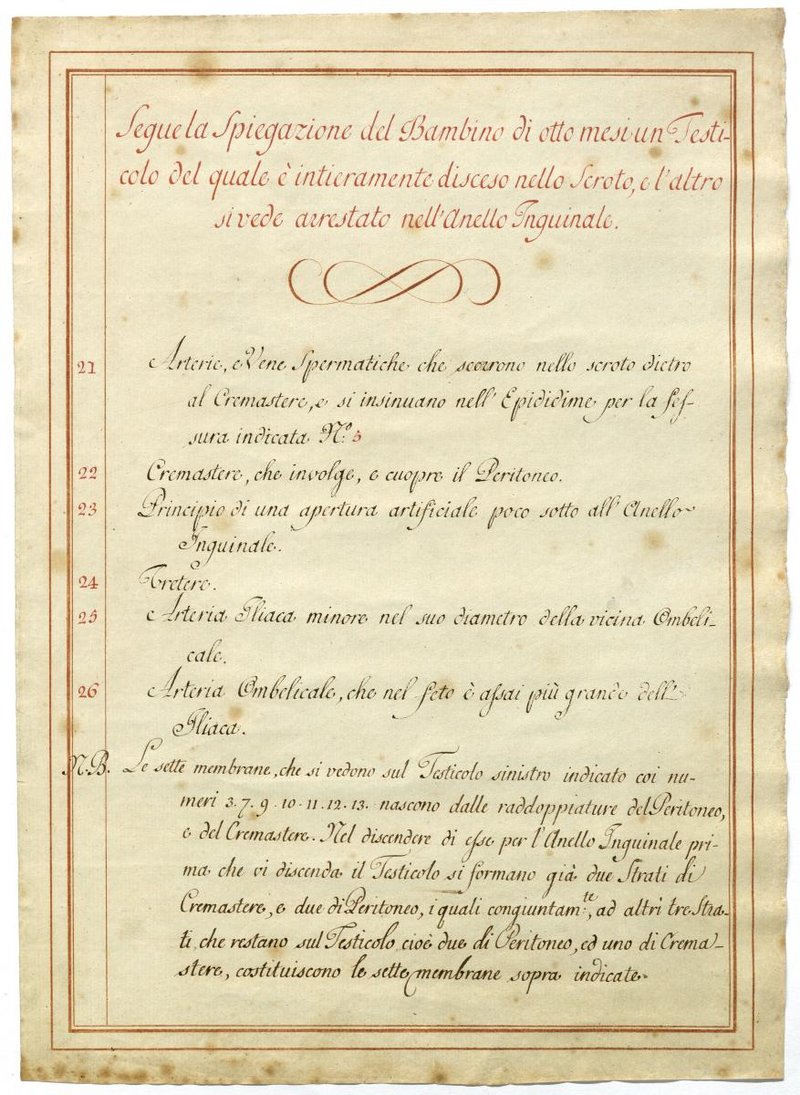 Segue la Spiegazione del Bambino di otto mesi un Testi-
colo del quale è intieramente disceso nello Scroto, e l'altro
si vede arrestato nell'Anello Inguinale.
21 Arterie, e Vene Spermatiche che scorrono nello scroto dietro
al Cremastere, e si insinuano nell' Epididime per la fes-
sura indicata N.º 5
22 Cremastere, che involge, e cuopre il Peritoneo.
23 Principio di una apertura artificiale poco sotto all' Anello
Inguinale.
24 Uretere.
25 Arteria Iliaca minore nel suo diametro della vicina Ombeli-
cale.
26 Arteria Ombelicale, che nel feto è assai più grande dell'
Iliaca.
N.B. Le sette membrane, che si vedono sul Testicolo sinistro indicato coi nu-
meri 3. 7. 9. 10. 11. 12. 13. nascono dalle raddoppiature del Peritoneo,
e del Cremastere. Nel discendere di esse per l'Anello Inguinale pri-
ma che vi discenda il Testicolo si formano già due Strati di
Cremastere, e due di Peritoneo, i quali congiuntam.te, ad altri tre Stra-
ti, che restano sul Testicolo, cioè due di Peritoneo, ed uno di Crema-
stere, costituiscono le sette membrane sopra indicate.